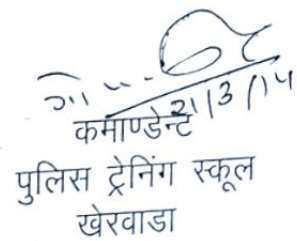 21/3/14
कमाण्डेन्ट
पुलिस ट्रेनिंग स्कूल
खेरवाडा